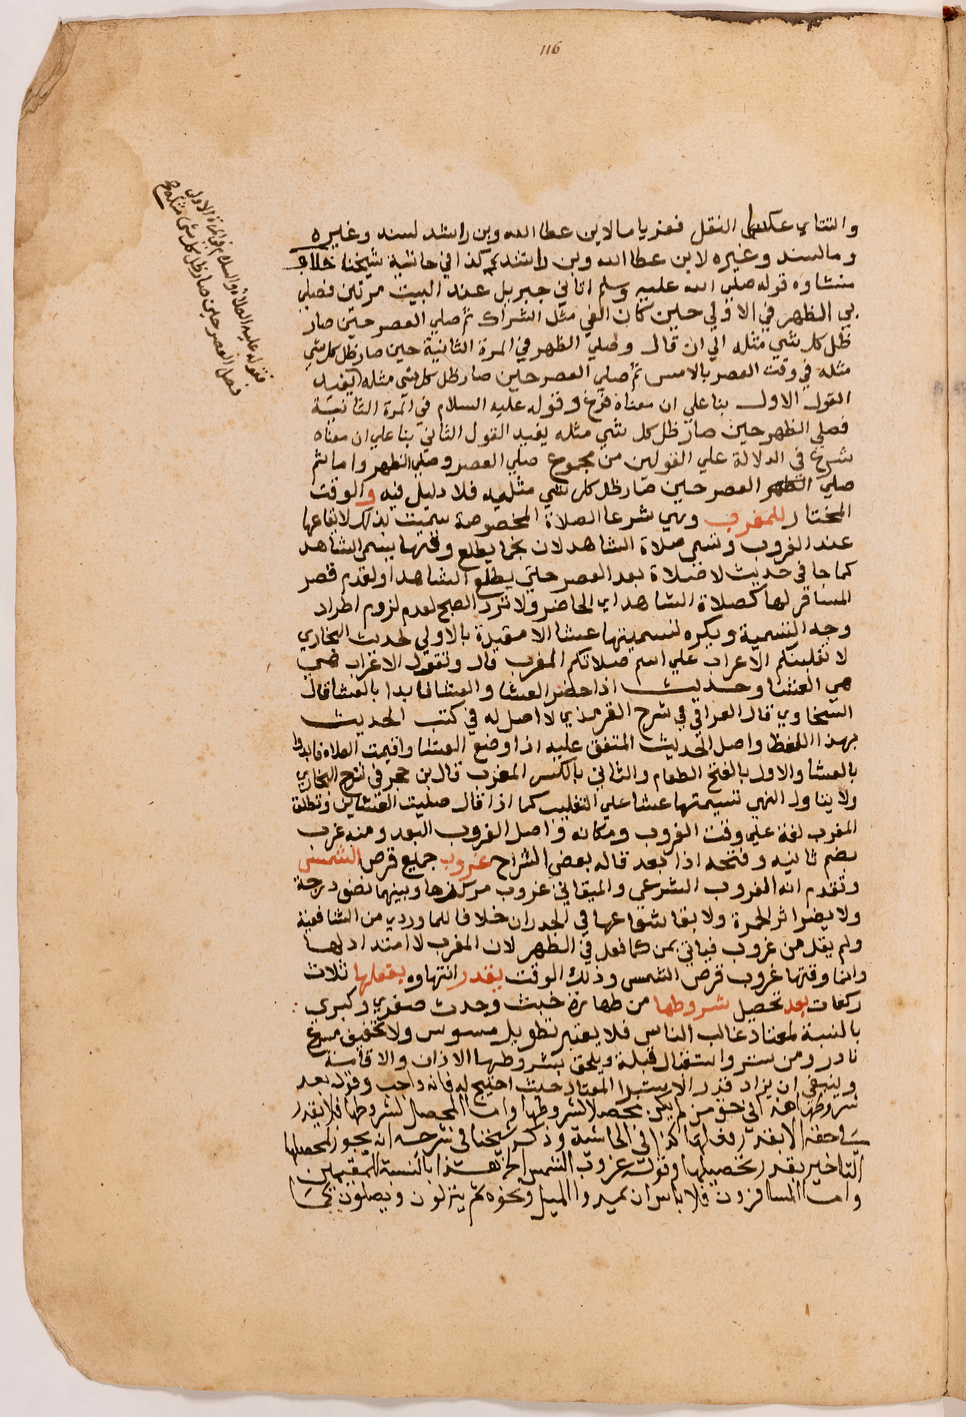 116
والتتاي عكس النقل فعزيا ما لابن عطا الله وبن راشد لسند وغيره
وما لسند وغيره لابن عطا الله وبن راشد كذا في حاشية شيخنا خلاف
منشاوه قوله صلي الله عليه وسلم اتاني جبريل عند البيت مرتين فصلي
بي الظهر في الاولي حين كان الفي مثل الشراك ثم صلي العصر حين صار
ظل كل شي مثله الي ان قال وصلي الظهر في المرة الثانية حين صار ظل كل شي
مثله في وقت العصر بالامس ثم صلي العصر حين صار ظل كل شي مثله يفيد
القول الاول بنا علي ان معناه فرغ وقوله عليه السلام في المرة الثانية
فصلي الظهر حين صار ظل كل شي مثله يفيد القول الثاني بنا علي ان معناه
شرع في الدلالة علي القولين من مجموع صلي العصر وصلي الظهر واما ثم
صلي العصر حين صار ظل كل شي مثليه فلا دليل فيه والوقت
المختار للمغرب وهي شرعا الصلاة المخصوصة سميت بذلك لايقاعها
عند الغروب وتسمي صلاة الشاهد لان نجما يطلع وقتها يسمي الشاهد
كما جا في حديث لا صلاة بعد العصر حتي يطلع الشاهد او لعدم قصر
المسافر لها كصلاة الشاهد اي الحاضر ولا ترد الصبح لعدم لزوم اطراد
وجه التسمية ويكره تسميتها عشا الا مقيدة بالاولي لحديث البخاري
لا تغلبنكم الاعراب علي اسم صلاتكم المغرب قال وتقول الاعراب هي
هي العشا وحديث اذا حضر العشا والعشا فابدا بالعشا قال
السخاوي قال العراقي في شرح الترمذي لا اصل له في كتب الحديث
بهذا اللفظ واصل الحديث المتفق عليه اذا وضع العشا واقيمت الصلاه فابدوا
بالعشا والاول بالفتح الطعام والثاني بالكسر المغرب قال بن حجر في شرح البخاري
ولا يتناول النهي تسيمتها عشا علي التغليب كما اذا قال صليت العشاين وتطلق
المغرب لغة علي وقت الغروب ومكانه واصل الغروب البعد ومنه غرب
بضم ثانيه وفتحه اذا بعد قاله بعض الشراح غروب جميع قرص الشمس
وتقدم انه الغروب الشرعي والميقاتي غروب مركزها وبينهما نصف درجة
ولا يضر اثر الحمرة ولا بقا شعاعها في الجدران خلافا للماوردي من الشافعية
ولم يقل من غروب فياتي بمن كما فعل في الظهر لان المغرب لا امتداد لها
وانما وقتها غروب قرص الشمس وذلك الوقت يقدر انتهاوه بفعلها ثلاث
ركعات بعد تحصيل شروطها من طهارة خبث وحدث صغري وكبري
بالنسبة لمعتاد غالب الناس فلا يعتبر تطويل موسوس ولا تخفيف مسرع
نادر ومن ستر واستقبال قبلة ويلحق بشروطها الاذان والاقامة
وينبغي ان يزاد قدر الاستبرا المعتاد حيث احتيج له فانه واجب وقوله بعد
شروطها هذا في حق من لم يكن محصلا لشروطها واما المحصل لشروطها فلا يقدر
في حقه الا بقدر فعلها كذا في الحاشية وذكر شيخنا في شرحه انه يجوز لمحصلها
التاخير بقدر تحصيلها وقوله غروب الشمس الخ هذا بالنسبة للمقيمين
واما المسافرون فلا باس ان يميدوا الميل ونحوه ثم ينزلون ويصلون كما
فقوله عليه الصلاة والسلام في المرة الاولي
فصلي العصر حين صار ظل كل شي مثله